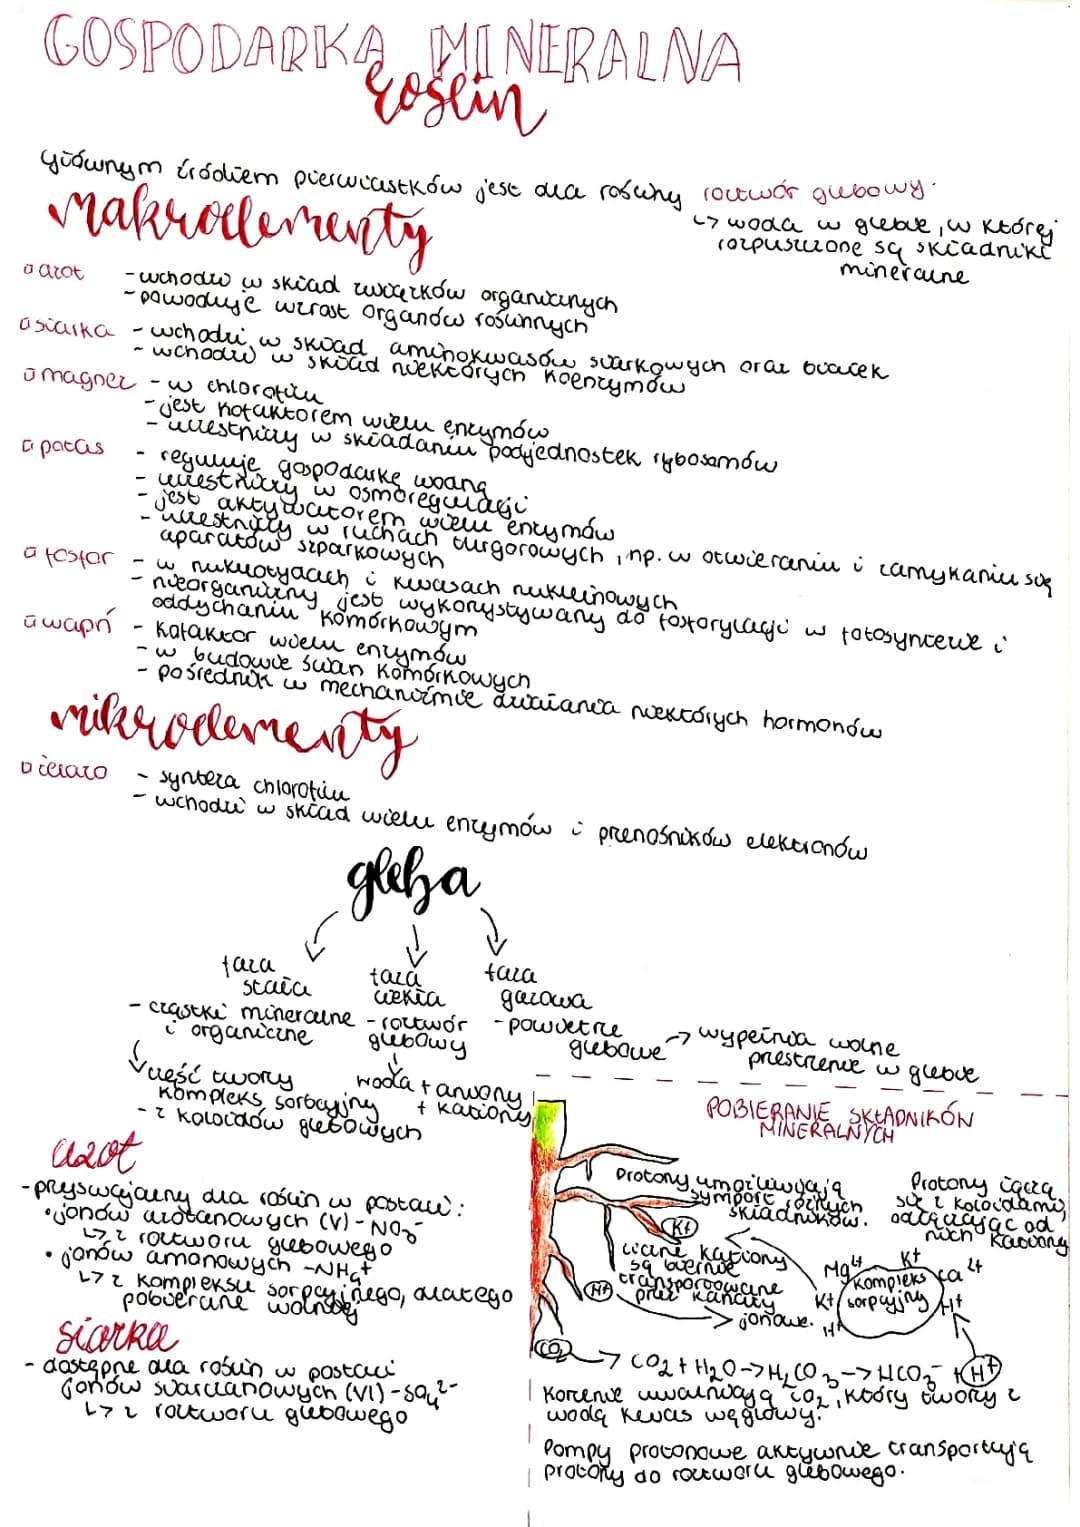 GOSPODARKA MINERALNA
roślin
głównym źródłem pierwiastków jest dla rośliny roztwór glebowy.
↳ woda w glebie, w której
rozpuszczone są składniki
mineralne
Makroelementy
azot
- wchodzi w skład związków organicznych
- powoduje wzrost organów roślinnych
siarka
- wchodzi w skład aminokwasów siarkowych oraz białek
- wchodzi w skład niektórych koenzymów
magnez
- w chlorofilu
- jest kofaktorem wielu enzymów
- uczestniczy w składaniu podjednostek rybosomów
potas
- reguluje gospodarkę wodną
- uczestniczy w osmoregulacji
- jest aktywatorem wielu enzymów
- uczestniczy w ruchach turgorowych, np. w otwieraniu i zamykaniu się
aparatów szparkowych
fosfor
- w nukleotydach i kwasach nukleinowych
- nieorganiczny jest wykorzystywany do fosforylacji w fotosyntezie i
oddychaniu komórkowym
wapń
- kofaktor wielu enzymów
- w budowie ścian komórkowych
- pośrednik w mechanizmie działania niektórych hormonów
mikroelementy
żelazo
- synteza chlorofilu
- wchodzi w skład wielu enzymów i przenośników elektronów
gleba
faza
stała
- cząstki mineralne
i organiczne
część tworzy
kompleks sorbcyjny
- z koloidów glebowych
faza
ciekła
- roztwór
glebowy
woda + aniony
+ kationy
faza
gazowa
- powietrze
glebowe
→ wypełnia wolne
przestrzenie w glebie
azot
- przyswajalny dla roślin w postaci:
• jonów azotanowych (V) - NO3-
↳ z roztworu glebowego
• jonów amonowych - NH4+
↳ z kompleksu sorpcyjnego, dlatego
pobierane wolniej
siarka
- dostępne dla roślin w postaci
jonów siarczanowych (VI) - SO4 2-
↳ z roztworu glebowego
POBIERANIE SKŁADNIKÓW
MINERALNYCH
Protony umożliwiają
symport różnych
składników.
Protony łączą
się z koloidami,
odłączając od
nich kationy
K+
Liczne kationy
są biernie
transportowane
przez kanały
jonowe.
H+
Mg2+
K+
Ca2+
K+
kompleks
sorpcyjny
H+
H+
CO2
→ CO2 + H2O → H2CO3 → HCO3- + H+
Korzenie uwalniają CO2, który tworzy z
wodą kwas węglowy.
Pompy protonowe aktywnie transportują
protony do roztworu glebowego.